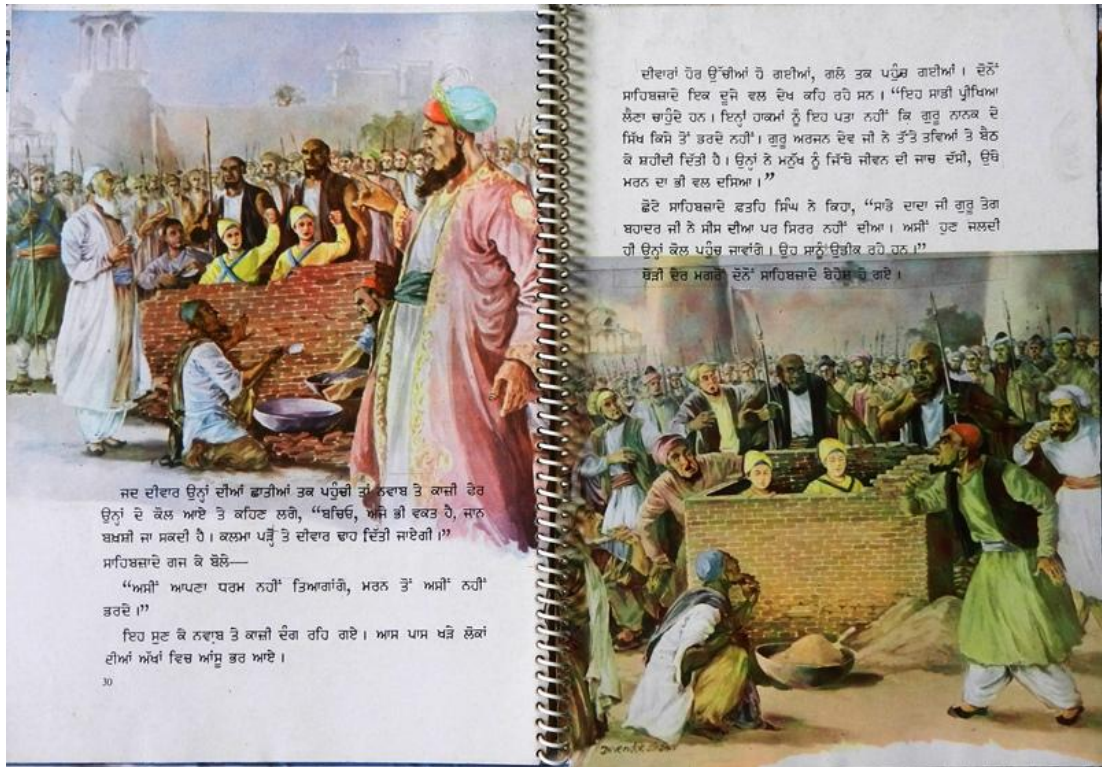 ਜਦ ਦੀਵਾਰ ਉਨ੍ਹਾਂ ਦੀਆਂ ਛਾਤੀਆਂ ਤਕ ਪਹੁੰਚੀ ਤਾਂ ਨਵਾਬ ਤੇ ਕਾਜ਼ੀ ਫੇਰ
ਉਨ੍ਹਾਂ ਦੇ ਕੋਲ ਆਏ ਤੇ ਕਹਿਣ ਲਗੇ, “ਬਚਿਓ, ਅਜੇ ਭੀ ਵਕਤ ਹੈ, ਜਾਨ
ਬਖ਼ਸ਼ੀ ਜਾ ਸਕਦੀ ਹੈ। ਕਲਮਾ ਪੜ੍ਹੋਂ ਤੇ ਦੀਵਾਰ ਢਾਹ ਦਿੱਤੀ ਜਾਏਗੀ।”
ਸਾਹਿਬਜ਼ਾਦੇ ਗਜ ਕੇ ਬੋਲੇ—
“ਅਸੀਂ ਆਪਣਾ ਧਰਮ ਨਹੀਂ ਤਿਆਗਾਂਗੇ, ਮਰਨ ਤੋਂ ਅਸੀਂ ਨਹੀਂ
ਡਰਦੇ।”
ਇਹ ਸੁਣ ਕੇ ਨਵਾਬ ਤੇ ਕਾਜ਼ੀ ਦੰਗ ਰਹਿ ਗਏ। ਆਸ ਪਾਸ ਖੜੇ ਲੋਕਾਂ
ਦੀਆਂ ਅੱਖਾਂ ਵਿਚ ਆਂਸੂ ਭਰ ਆਏ।
30
ਦੀਵਾਰਾਂ ਹੋਰ ਉੱਚੀਆਂ ਹੋ ਗਈਆਂ, ਗਲੇ ਤਕ ਪਹੁੰਚ ਗਈਆਂ। ਦੋਨੋਂ
ਸਾਹਿਬਜ਼ਾਦੇ ਇਕ ਦੂਜੇ ਵਲ ਦੇਖ ਕਹਿ ਰਹੇ ਸਨ। “ਇਹ ਸਾਡੀ ਪ੍ਰੀਖਿਆ
ਲੈਣਾ ਚਾਹੁੰਦੇ ਹਨ। ਇਨ੍ਹਾਂ ਹਾਕਮਾਂ ਨੂੰ ਇਹ ਪਤਾ ਨਹੀਂ ਕਿ ਗੁਰੂ ਨਾਨਕ ਦੇ
ਸਿੱਖ ਕਿਸੇ ਤੋਂ ਡਰਦੇ ਨਹੀਂ। ਗੁਰੂ ਅਰਜਨ ਦੇਵ ਜੀ ਨੇ ਤੱਤੇ ਤਵਿਆਂ ਤੇ ਬੈਠ
ਕੇ ਸ਼ਹੀਦੀ ਦਿੱਤੀ ਹੈ। ਉਨ੍ਹਾਂ ਨੇ ਮਨੁੱਖ ਨੂੰ ਜਿੱਥੇ ਜੀਵਨ ਦੀ ਜਾਚ ਦੱਸੀ, ਉਥੇ
ਮਰਨ ਦਾ ਭੀ ਵਲ ਦਸਿਆ।”
ਛੋਟੇ ਸਾਹਿਬਜ਼ਾਦੇ ਫ਼ਤਹਿ ਸਿੰਘ ਨੇ ਕਿਹਾ, “ਸਾਡੇ ਦਾਦਾ ਜੀ ਗੁਰੂ ਤੇਗ
ਬਹਾਦਰ ਜੀ ਨੇ ਸੀਸ ਦੀਆ ਪਰ ਸਿਰਰ ਨਹੀਂ ਦੀਆ। ਅਸੀਂ ਹੁਣ ਜਲਦੀ
ਹੀ ਉਨ੍ਹਾਂ ਕੋਲ ਪਹੁੰਚ ਜਾਵਾਂਗੇ। ਉਹ ਸਾਨੂੰ ਉਡੀਕ ਰਹੇ ਹਨ।”
ਥੋੜੀ ਦੇਰ ਮਗਰੋਂ ਦੋਨੋਂ ਸਾਹਿਬਜ਼ਾਦੇ ਬੇਹੋਸ਼ ਹੋ ਗਏ।